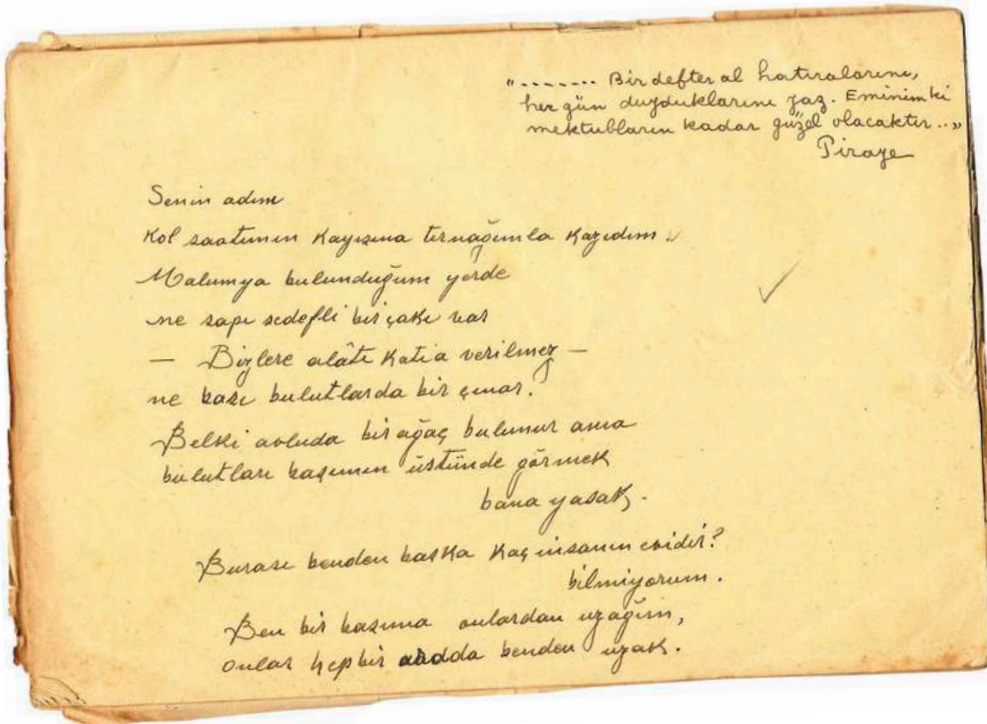 "....... Bir defter al hatıralarını,
her gün duyduklarını yaz. Eminim ki
mektubların kadar güzel olacaktır.."
Piraye
Senin adını
Kol saatımın kayışına tırnağımla kazıdım.
Malumya bulunduğum yerde
ne sapı sedefli bir çakı var
— Bizlere alâtı katıa verilmez —
ne başı bulutlarda bir çınar.
Belki avluda bir ağaç bulunur ama
bulutları başımın üstünde görmek
bana yasak.
Burası benden başka kaç insanın evidir?
bilmiyorum.
Ben bir başıma onlardan uzağım,
onlar hep bir arada benden uzak.